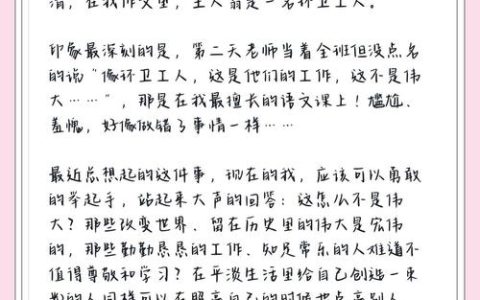 清，在我作文里，主人翁是一名环卫工人。
印象最深刻的是，第二天老师当着全班但没点名
的说“像环卫工人，这是他们的工作，这不是伟
大……”，那是在我最擅长的语文课上！尴尬、
羞愧，好像做错了事情一样……
最近总想起的这件事，现在的我，应该可以勇敢
的举起手，站起来大声的回答：这怎么不是伟
大？那些改变世界、留在历史里的伟大是宏伟
的，那些勤勤恳恳的工作、知足常乐的人难道不
值得尊敬和学习？在平淡生活里给自己创造一束
光的人同样可以在照亮自己的时候也点亮别人